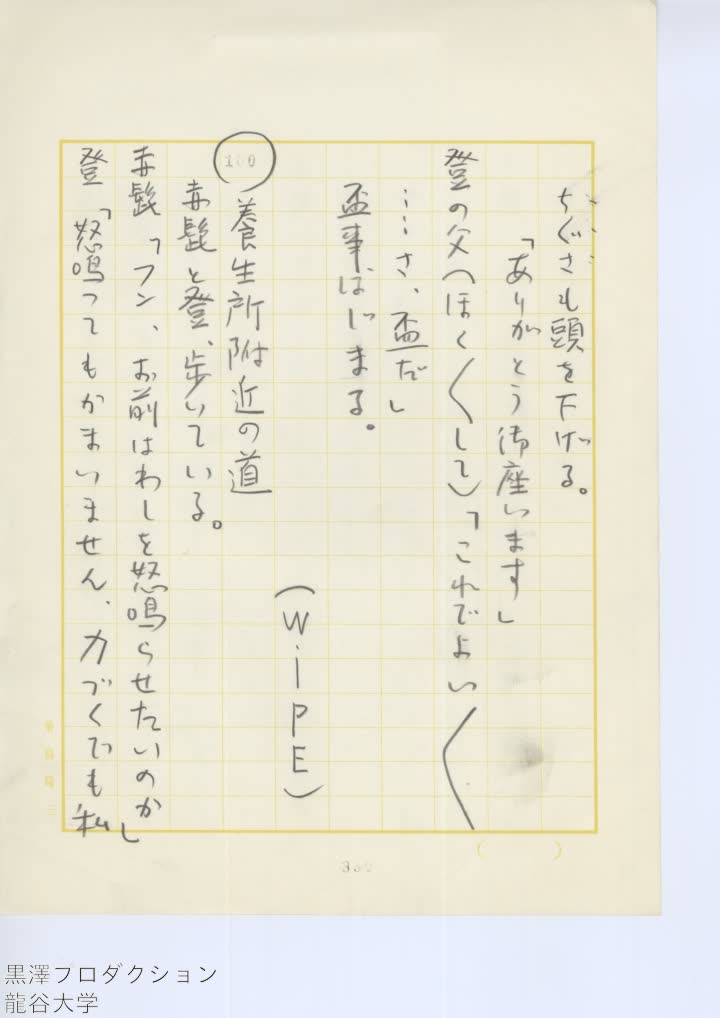 ちぐさも頭を下げる。
「ありがとう御座います」
登の父(ほく〱して)「これでよい〱
……さ、盃だ」
盃事はじまる。
(WiPE)
100
養生所附近の道
赤髭と登、歩いている。
赤髭「フン、お前はわしを怒鳴らせたいのか」
登「怒鳴ってもかまいません、力づくでも私
黒澤プロダクション
龍谷大学